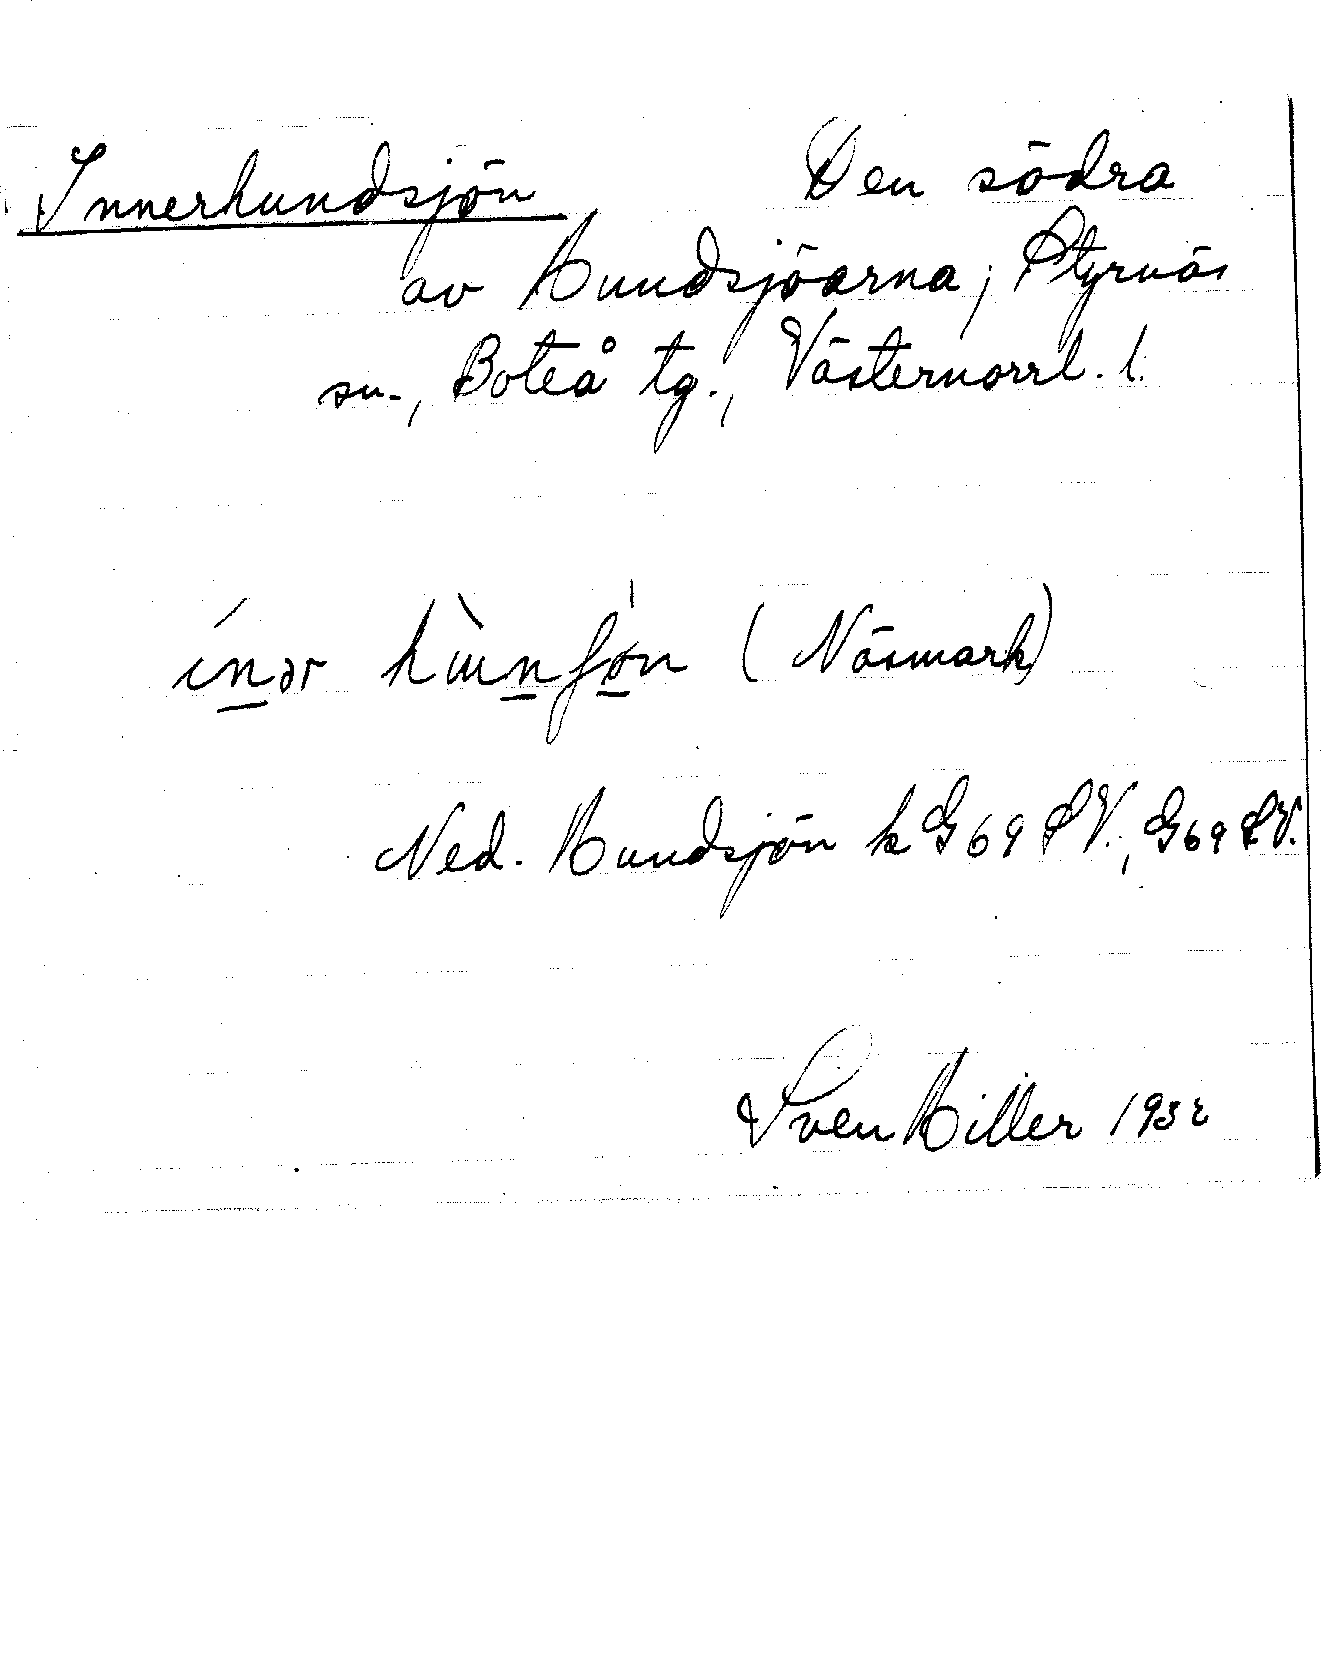 Innerhundsjön Den södra
av Hundsjöarna, Styrnäs
sn., Boteå tg., Västernorrl. l.
ínər hùnʃøn (Näsmark)
Ned. Hundsjön k G69 SV., G69 SV.
Sven Hiller 1932